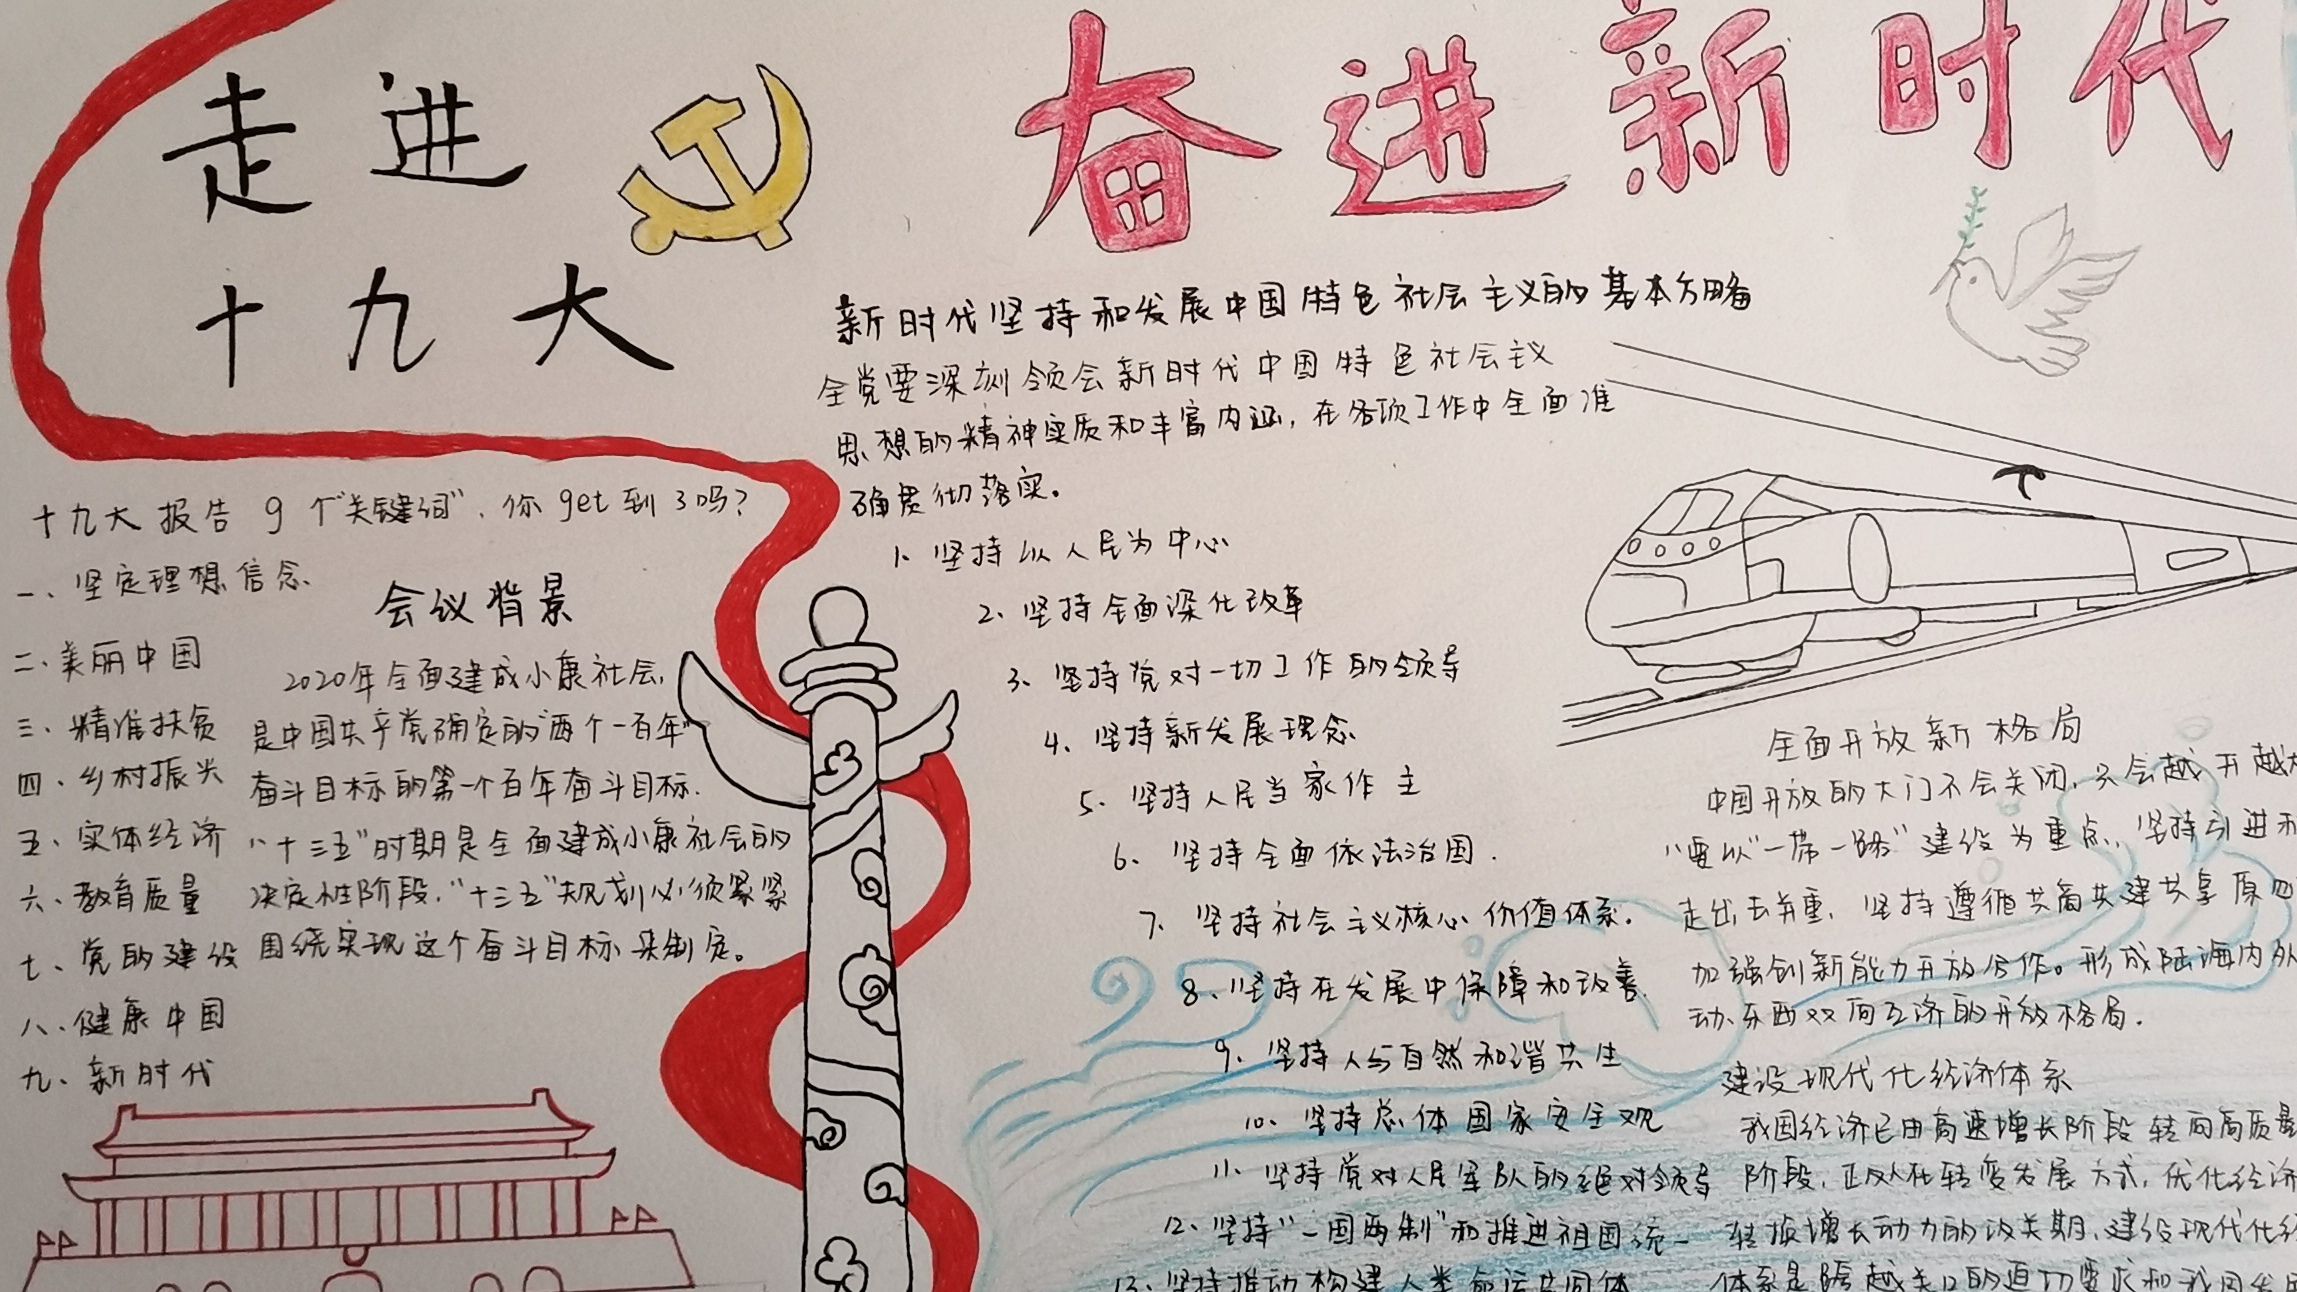 走进
十九大
奋进新时代
十九大报告 9个"关键词"、你get到了吗?
一、坚定理想信念
二、美丽中国
三、精准扶贫
四、乡村振兴
五、实体经济
六、教育质量
七、党的建设
八、健康中国
九、新时代
会议背景
2020年全面建成小康社会,
是中国共产党确定的"两个一百年"
奋斗目标的第一个百年奋斗目标.
"十三五"时期是全面建成小康社会的
决定性阶段."十三五"规划必须紧紧
围绕实现这个奋斗目标来制定。
新时代坚持和发展中国特色社会主义的基本方略
全党要深刻领会新时代中国特色社会主义
思想的精神实质和丰富内涵,在各项工作中全面准
确贯彻落实。
1、坚持以人民为中心
2、坚持全面深化改革
3、坚持党对一切工作的领导
4、坚持新发展理念
5、坚持人民当家作主
6、坚持全面依法治国.
7、坚持社会主义核心价值体系.
8、坚持在发展中保障和改善
9、坚持人与自然和谐共生
10、坚持总体国家安全观
11、坚持党对人民军队的绝对领导
12、坚持"一国两制"和推进祖国统一
13、坚持推动构建人类命运共同体
全面开放新格局
中国开放的大门不会关闭,只会越开越大
"要以"一带一路"建设为重点,坚持引进和
走出去并重,坚持遵循共商共建共享原则
加强创新能力开放合作。形成陆海内外
动、东西双向互济的开放格局.
建设现代化经济体系
我国经济已由高速增长阶段转向高质量
阶段,正处在转变发展方式,优化经济
转换增长动力的攻关期,建设现代化经
体系是跨越关口的迫切要求和我国发展